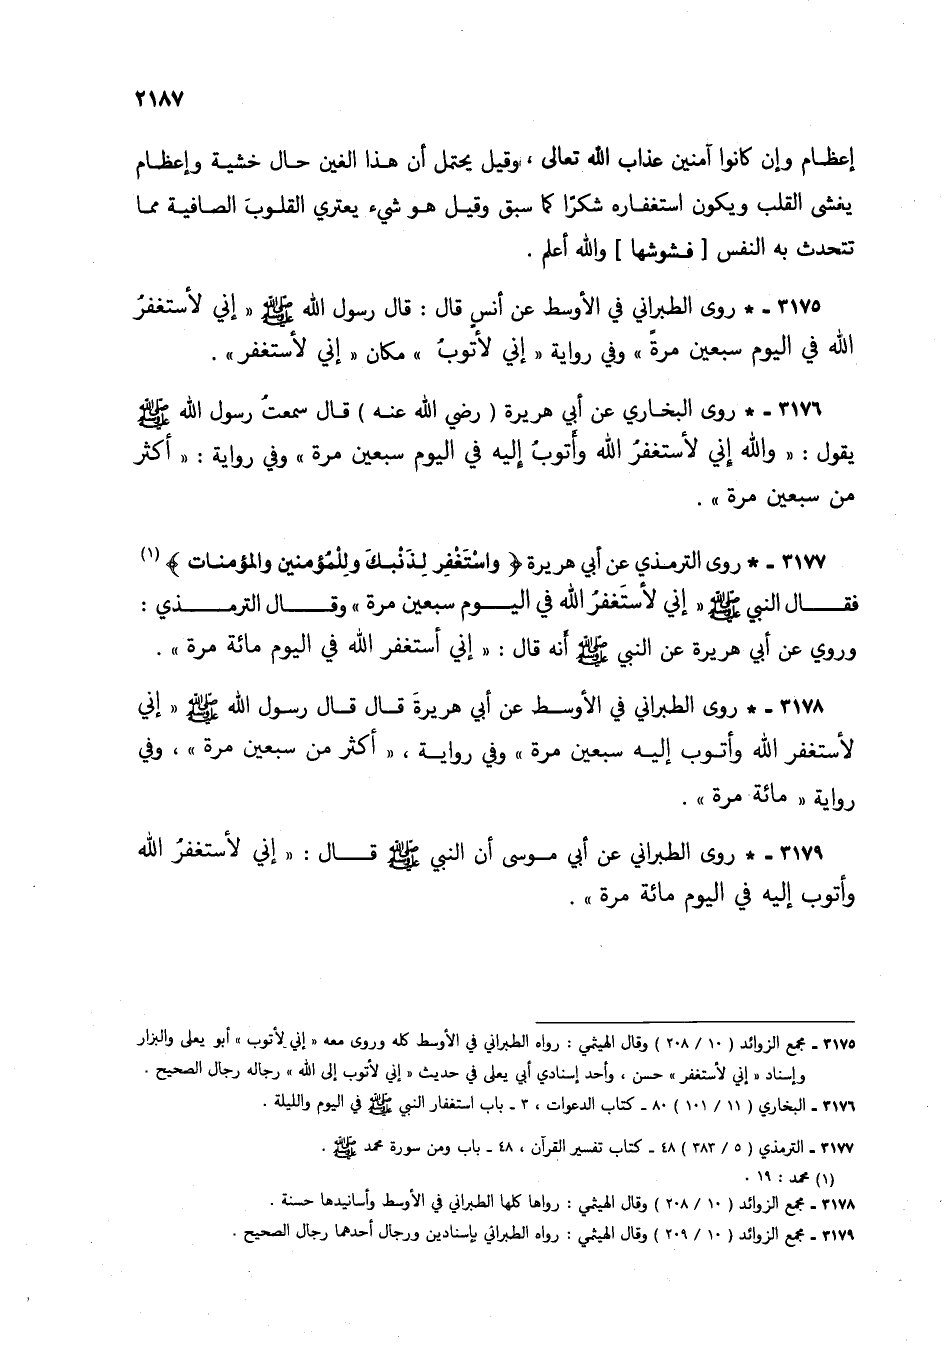 ٢١٨٧
إعظـام وإن كانوا آمنين عذاب الله تعالى ، وقيل يحتمل أن هـذا الغين حـال خشيـة وإعظـام
يغشى القلب ويكون استغفـاره شكرًا كما سبق وقيـل هـو شيء يعتري القلـوبَ الصـافيـة ممـا
تتحدث به النفس [ فـشوشها ] والله أعلم .
٣١٧٥ ـ * روى الطبراني في الأوسط عن أنسٍ قال : قال رسول الله ﷺ « إني لأستغفرُ
الله في اليوم سبعين مرةً » وفي رواية « إني لأتوبُ » مكان « إني لأستغفر» .
٣١٧٦ ـ * روى البخـاري عن أبي هريرة ( رضي الله عنـه ) قـال سمعتُ رسول الله ﷺ
يقول : « والله إني لأستغفرُ الله وأتوبُ إليه في اليوم سبعين مرة » وفي رواية : « أكثر
من سبعين مرة » .
٣١٧٧ ـ * روى الترمـذي عن أبي هريرة ﴿ واسْتَغْفِر لِـذَنْبِـكَ ولِلْمُؤمنين والمؤمنـات ﴾ (١)
فقـــال النبي ﷺ « إني لأستَغفرُ الله في اليـــوم سبعين مرة » وقـــال الترمـــذي :
وروي عن أبي هريرة عن النبي ﷺ أنه قال : « إني أستغفر الله في اليوم مائة مرة » .
٣١٧٨ ـ * روى الطبراني في الأوســط عن أبي هريرةَ قـال قـال رسول الله ﷺ « إني
لأستغفر الله وأتـوب إليـه سبعين مرة » وفي روايـة ، « أكثر من سبعين مرة » ، وفي
رواية « مائة مرة » .
٣١٧٩ ـ * روى الطبراني عن أبي مـوسى أن النبي ﷺ قـــال : « إني لأستغفرُ الله
وأتوب إليه في اليوم مائة مرة » .
٣١٧٥ ـ مجمع الزوائد ( ١٠ / ٢٠٨ ) وقال الهيثمي : رواه الطبراني في الأوسط كله وروى معه « إني لأتوب » أبو يعلى والبزار
وإسناد « إني لأستغفر » حسن ، وأحد إسنادي أبي يعلى في حديث « إني لأتوب إلى الله » رجاله رجال الصحيح .
٣١٧٦ ـ البخاري ( ١١ / ١٠١ ) ٨٠ ـ كتاب الدعوات ، ٣ ـ باب استغفار النبي ﷺ في اليوم والليلة .
٣١٧٧ ـ الترمذي ( ٥ / ٣٨٣ ) ٤٨ ـ كتاب تفسير القرآن ، ٤٨ ـ باب ومن سورة محمد ﷺ .
(١) محمد : ١٩ .
٣١٧٨ ـ مجمع الزوائد ( ١٠ / ٢٠٨ ) وقال الهيثمي : رواها كلها الطبراني في الأوسط وأسانيدها حسنة .
٣١٧٩ ـ مجمع الزوائد ( ١٠ / ٢٠٩ ) وقال الهيثمي : رواه الطبراني بإسنادين ورجال أحدهما رجال الصحيح .